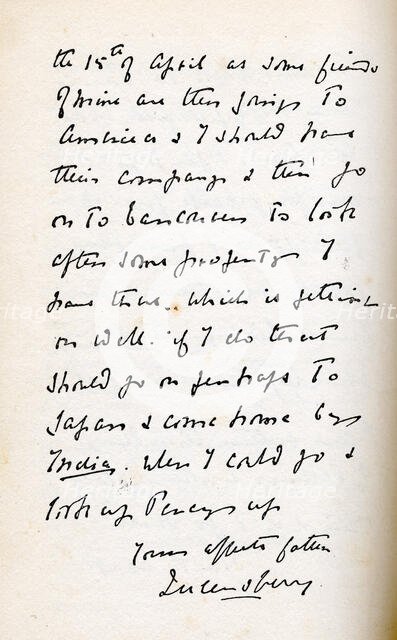 the 15th of April as some friends
of mine are then going to
America & I should have
their company & then go
on to Vancouver to look
after some property I
have there.. which is getting
on well. if I do that
should go on perhaps to
Japan & come home by
India. When I could go &
look up Percy up
Your affecte father
Queensberry.